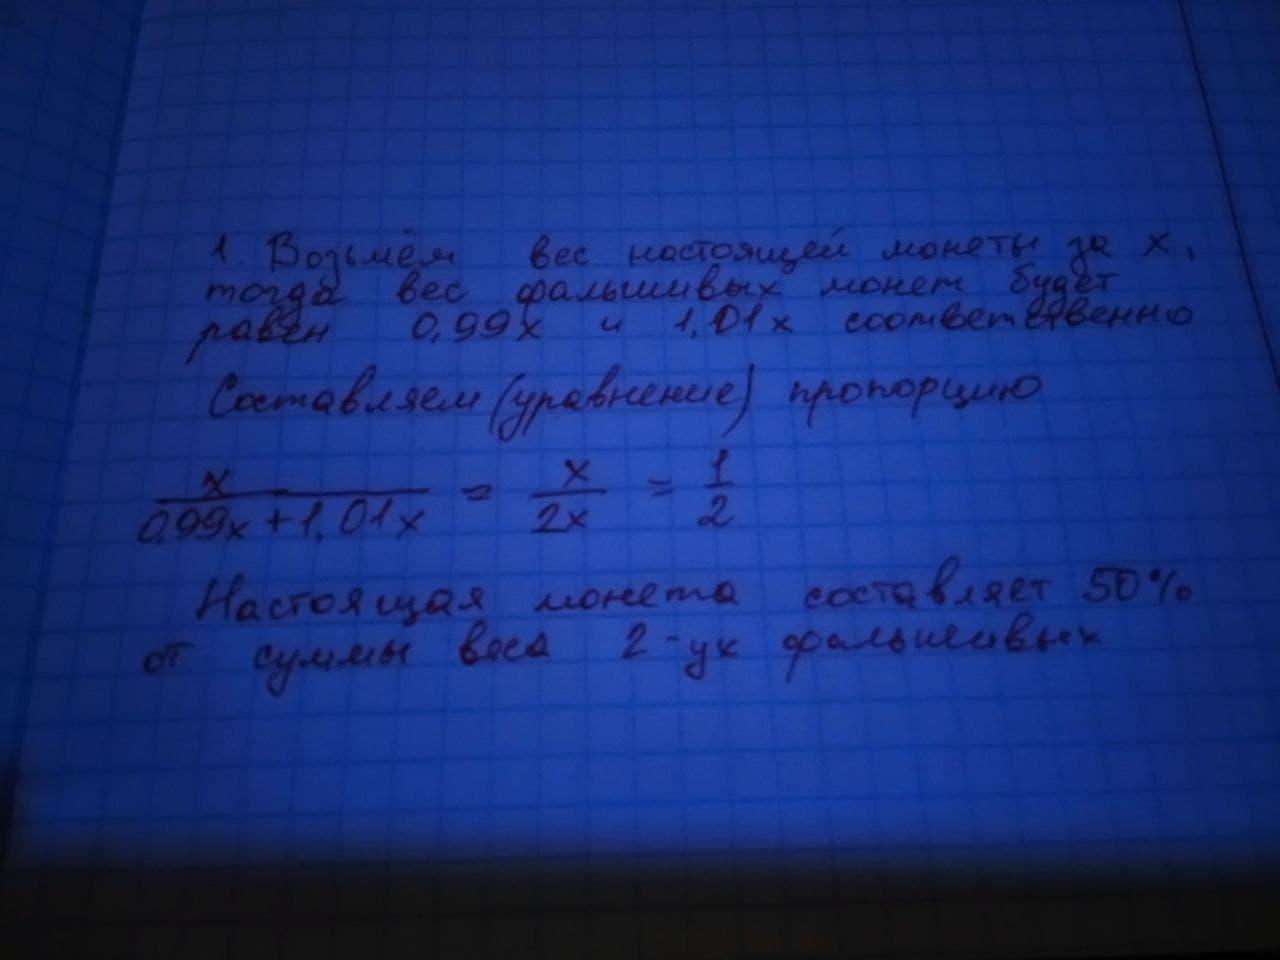 1. Возьмём вес настоящей монеты за x,
тогда вес фальшивых монет будет
равен 0,99x и 1,01x соответственно
Составляем (уравнение) пропорцию
x / (0,99x + 1,01x) = x / 2x = 1 / 2
Настоящая монета составляет 50%
от суммы веса 2-ух фальшивых